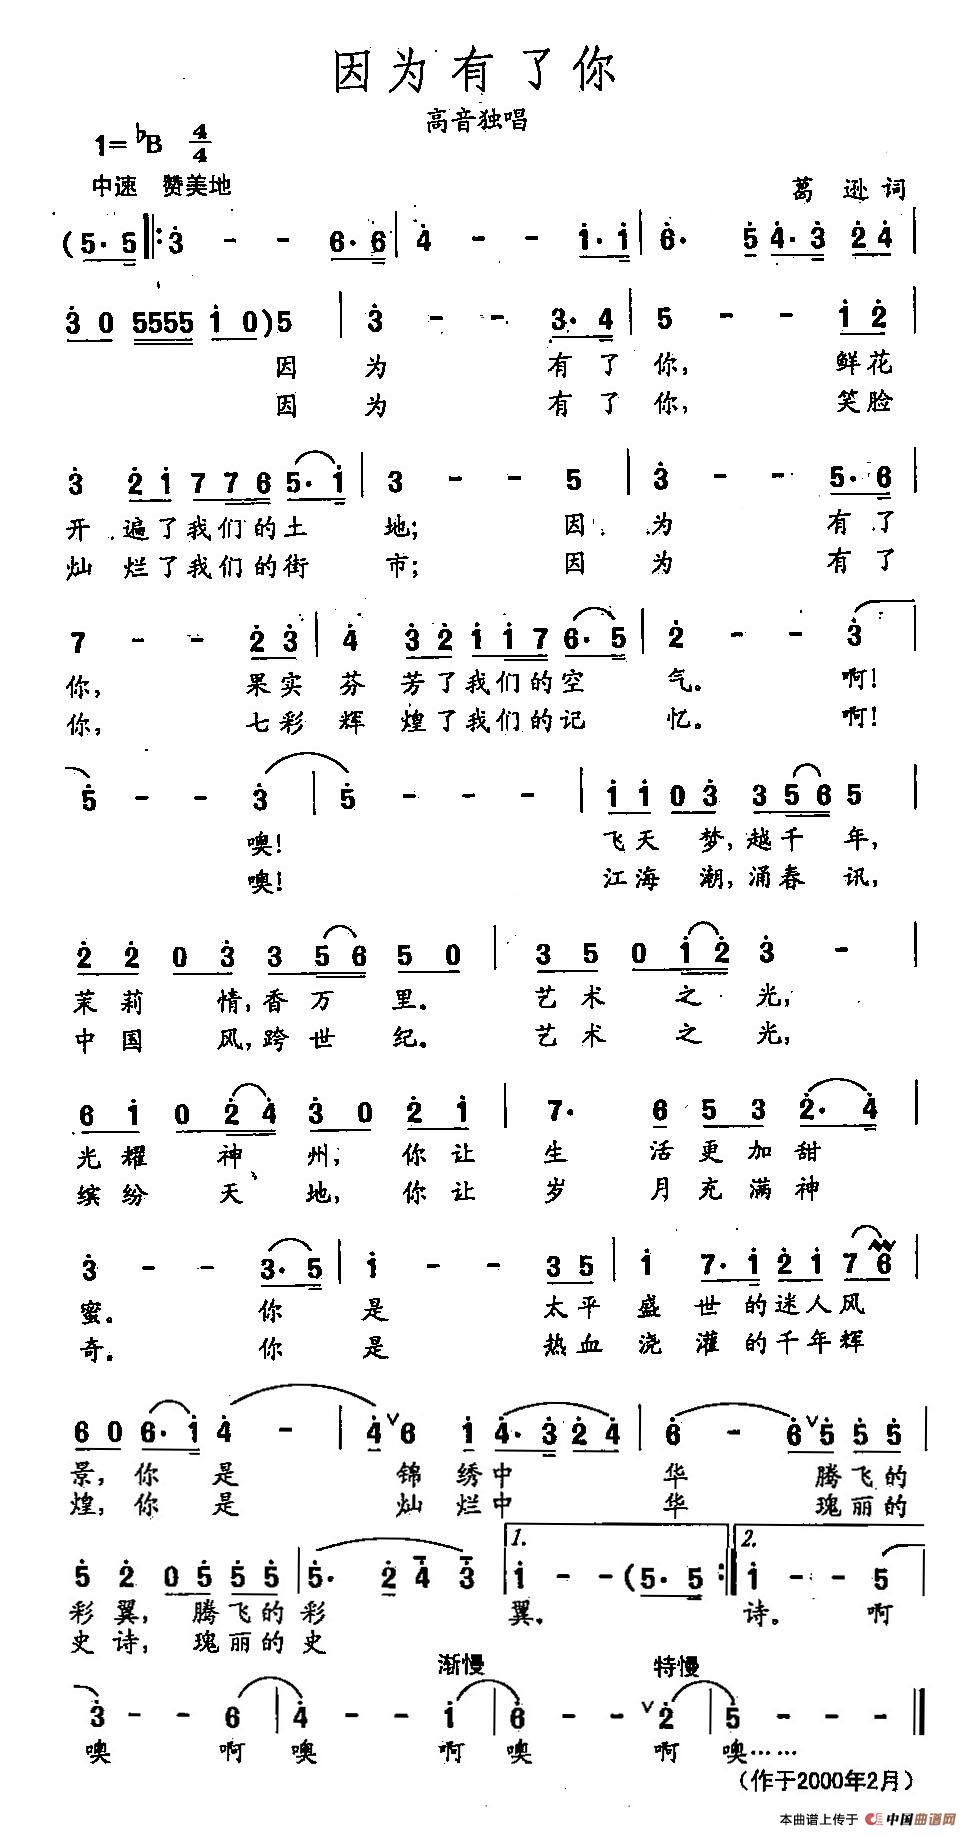 因为有了你
高音独唱
1=♭B 4/4
中速 赞美地
葛逊词
(5·5 3 - - 6·6 4 - - 1·1 6· 5 4·3 2 4
3 0 5555 1 0)5 3 - - 3·4 5 - - 1 2
因 为 有 了 你, 鲜花
因 为 有 了 你, 笑脸
3 2 1 7 7 6 5·1 3 - - 5 3 - - 5·6
开 遍了我们的土 地; 因 为 有 了
灿 烂了我们的街 市; 因 为 有 了
7 - - 2 3 4 3 2 1 1 7 6·5 2 - - 3
你, 果实芬 芳了我们的空 气。 啊!
你, 七彩辉 煌了我们的记 忆。 啊!
5 - - 3 5 - - - 1 1 0 3 3 5 6 5
噢! 飞天 梦,越千 年,
噢! 江海 潮,涌春 讯,
2 2 0 3 3 5 6 5 0 3 5 0 1 2 3 -
茉莉 情,香万 里。 艺术 之 光,
中国 风,跨世 纪。 艺术 之 光,
6 1 0 2 4 3 0 2 1 7· 6 5 3 2·4
光耀 神 州, 你让 生 活更加甜
缤纷 天 地, 你让 岁 月充满神
3 - - 3·5 1 - - 3 5 1 7·1 2 1 7 6
蜜。 你 是 太平 盛 世的迷人风
奇。 你 是 热血 浇 灌的千年辉
6 0 6·1 4 - 4 ∨ 6 1 4·3 2 4 6 - 6 ∨ 5 5 5
景,你 是 锦 绣中 华 腾飞的
煌,你 是 灿 烂中 华 瑰丽的
1. 2.
5 2 0 5 5 5 5· 2 4 3 1 - (5·5 1 - - 5
彩翼, 腾飞的彩 翼。 诗。 啊
史诗, 瑰丽的史
渐慢 特慢
3 - - 6 4 - - 1 6 - - ∨ 2 5 - - -
噢 啊噢 啊噢 啊噢……
(作于2000年2月)
本曲谱上传于 中国曲谱网